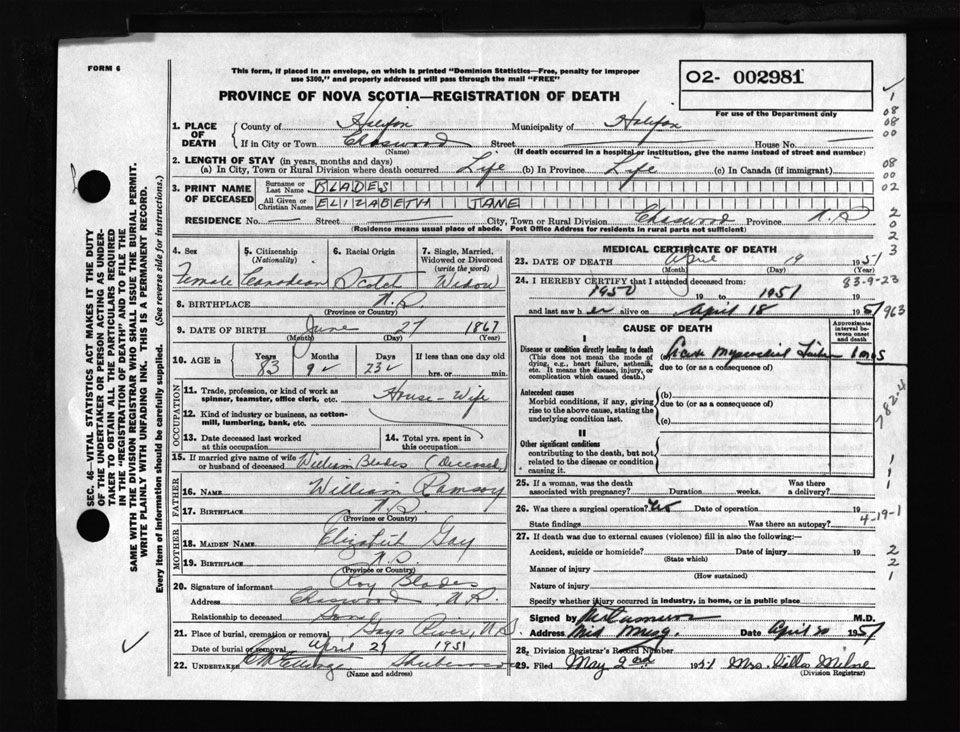 FORM 6
This form, if placed in an envelope, on which is printed "Dominion Statistics—Free, penalty for improper
use $300," and properly addressed will pass through the mail "FREE"
O2- 002981
PROVINCE OF NOVA SCOTIA—REGISTRATION OF DEATH
For use of the Department only
1. PLACE OF DEATH County of Halifax Municipality of Halifax
If in City or Town Chaswood Street House No.
(Name) (If death occurred in a hospital or institution, give the name instead of street and number)
2. LENGTH OF STAY (in years, months and days)
(a) In City, Town or Rural Division where death occurred Life (b) In Province Life (c) In Canada (if immigrant)
3. PRINT NAME OF DECEASED Surname or Last Name BLADES
All Given or Christian Names ELIZABETH JANE
RESIDENCE No. — Street — City, Town or Rural Division Chaswood Province N.S
(Residence means usual place of abode. Post Office Address for residents in rural parts not sufficient)
4. Sex Female
5. Citizenship (Nationality) Canadian
6. Racial Origin Scotch
7. Single, Married, Widowed or Divorced (write the word) Widow
8. BIRTHPLACE N.S
(Province or Country)
9. DATE OF BIRTH June 27 1867
(Month) (Day) (Year)
10. AGE in Years 83 Months 9 Days 23 If less than one day old
hrs. or min.
OCCUPATION
11. Trade, profession, or kind of work as spinner, teamster, office clerk, etc. House-Wife
12. Kind of industry or business, as cotton-mill, lumbering, bank, etc.
13. Date deceased last worked at this occupation
14. Total yrs. spent in this occupation
15. If married give name of wife or husband of deceased William Blades (Deceased)
FATHER
16. NAME William Ramsay
17. BIRTHPLACE N.S.
(Province or Country)
MOTHER
18. MAIDEN NAME Elizabeth Gay
19. BIRTHPLACE N.S.
(Province or Country)
20. Signature of informant Roy Blades
Address Chaswood N.S.
Relationship to deceased Son
21. Place of burial, cremation or removal Gays River, N.S.
Date of burial or removal April 21 1951
22. UNDERTAKER
(Name and address)
MEDICAL CERTIFICATE OF DEATH
23. DATE OF DEATH April 19 1951
(Month) (Day) (Year)
24. I HEREBY CERTIFY that I attended deceased from: 83-9-23
1950 19 to 1951 19
and last saw her alive on April 18 1951
963
CAUSE OF DEATH
Approximate interval between onset and death
I
Disease or condition directly leading to death
(This does not mean the mode of dying, e.g., heart failure, asthenia, etc. It means the disease, injury, or complication which caused death.)
Acute Myocardial Failure
due to (or as a consequence of)
Antecedent causes
Morbid conditions, if any, giving rise to the above cause, stating the underlying condition last.
(b)
due to (or as a consequence of)
(c)
782-4
II
Other significant conditions
contributing to the death, but not related to the disease or condition causing it.
25. If a woman, was the death associated with pregnancy? Duration weeks. Was there a delivery?
26. Was there a surgical operation? No Date of operation 19
State findings Was there an autopsy?
4-19-1
27. If death was due to external causes (violence) fill in also the following:—
Accident, suicide or homicide? Date of injury 19
(State which)
Manner of injury
(How sustained)
Nature of injury
Specify whether injury occurred in industry, in home, or in public place
Signed by M.D.
Address Mid Musq. Date April 20 1951
28. Division Registrar's Record Number
29. Filed May 2nd 1951 Mrs. Milne
(Division Registrar)
SEC. 46—VITAL STATISTICS ACT MAKES IT THE DUTY
OF THE UNDERTAKER OR PERSON ACTING AS UNDER-
TAKER TO OBTAIN ALL THE PARTICULARS REQUIRED
IN THE "REGISTRATION OF DEATH" AND TO FILE THE
SAME WITH THE DIVISION REGISTRAR WHO SHALL ISSUE THE BURIAL PERMIT.
WRITE PLAINLY WITH UNFADING INK. THIS IS A PERMANENT RECORD.
Every item of information should be carefully supplied. (See reverse side for instructions.)
1
08
08
00
08
00
02
2
0
2
3
1
1
2
2
1